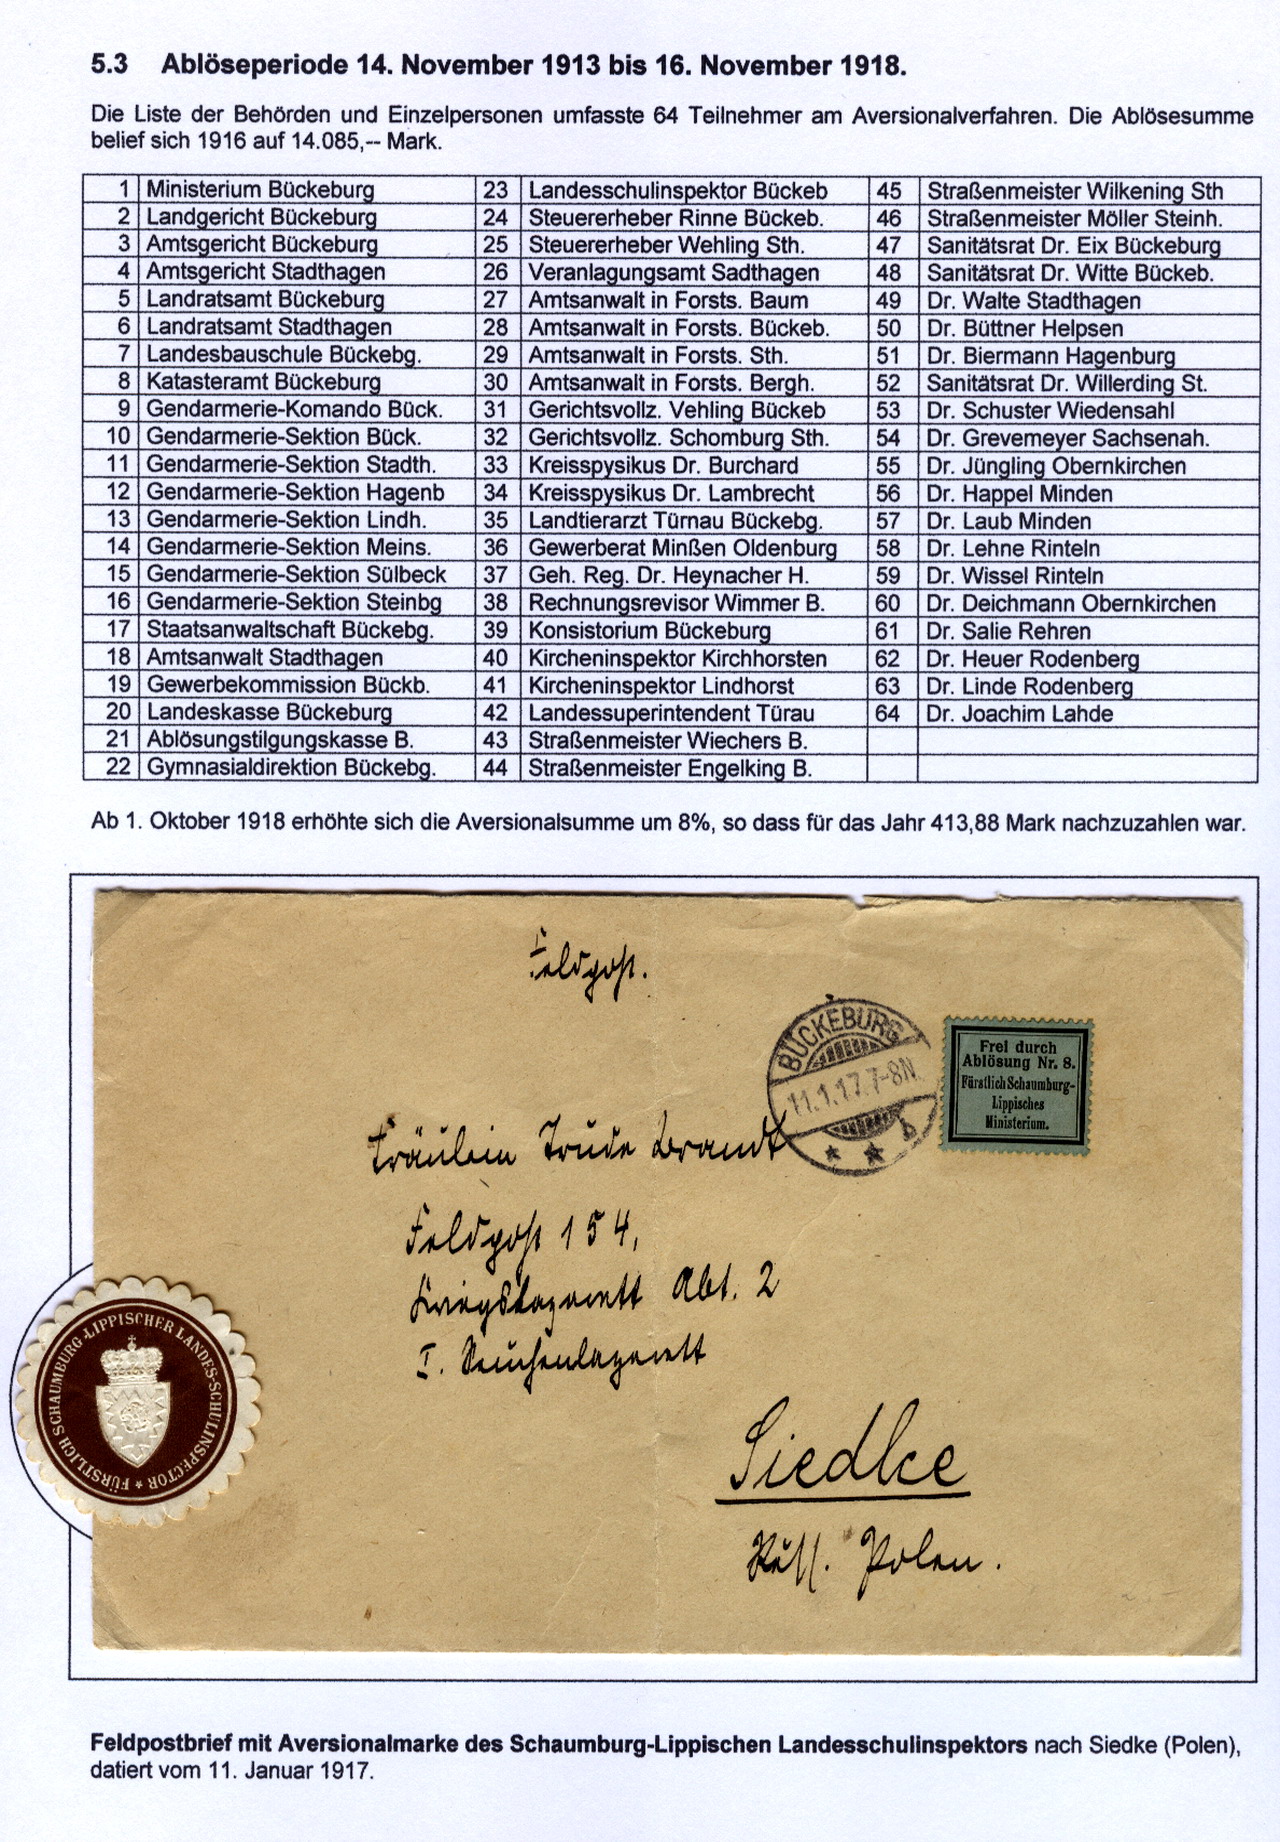 5.3 Ablöseperiode 14. November 1913 bis 16. November 1918.
Die Liste der Behörden und Einzelpersonen umfasste 64 Teilnehmer am Aversionalverfahren. Die Ablösesumme
belief sich 1916 auf 14.085,-- Mark.
1 Ministerium Bückeburg 23 Landesschulinspektor Bückeb 45 Straßenmeister Wilkening Sth
2 Landgericht Bückeburg 24 Steuererheber Rinne Bückeb. 46 Straßenmeister Möller Steinh.
3 Amtsgericht Bückeburg 25 Steuererheber Wehling Sth. 47 Sanitätsrat Dr. Eix Bückeburg
4 Amtsgericht Stadthagen 26 Veranlagungsamt Sadthagen 48 Sanitätsrat Dr. Witte Bückeb.
5 Landratsamt Bückeburg 27 Amtsanwalt in Forsts. Baum 49 Dr. Walte Stadthagen
6 Landratsamt Stadthagen 28 Amtsanwalt in Forsts. Bückeb. 50 Dr. Büttner Helpsen
7 Landesbauschule Bückebg. 29 Amtsanwalt in Forsts. Sth. 51 Dr. Biermann Hagenburg
8 Katasteramt Bückeburg 30 Amtsanwalt in Forsts. Bergh. 52 Sanitätsrat Dr. Willerding St.
9 Gendarmerie-Komando Bück. 31 Gerichtsvollz. Vehling Bückeb 53 Dr. Schuster Wiedensahl
10 Gendarmerie-Sektion Bück. 32 Gerichtsvollz. Schomburg Sth. 54 Dr. Grevemeyer Sachsenah.
11 Gendarmerie-Sektion Stadth. 33 Kreisspysikus Dr. Burchard 55 Dr. Jüngling Obernkirchen
12 Gendarmerie-Sektion Hagenb 34 Kreisspysikus Dr. Lambrecht 56 Dr. Happel Minden
13 Gendarmerie-Sektion Lindh. 35 Landtierarzt Türnau Bückebg. 57 Dr. Laub Minden
14 Gendarmerie-Sektion Meins. 36 Gewerberat Minßen Oldenburg 58 Dr. Lehne Rinteln
15 Gendarmerie-Sektion Sülbeck 37 Geh. Reg. Dr. Heynacher H. 59 Dr. Wissel Rinteln
16 Gendarmerie-Sektion Steinbg 38 Rechnungsrevisor Wimmer B. 60 Dr. Deichmann Obernkirchen
17 Staatsanwaltschaft Bückebg. 39 Konsistorium Bückeburg 61 Dr. Salie Rehren
18 Amtsanwalt Stadthagen 40 Kircheninspektor Kirchhorsten 62 Dr. Heuer Rodenberg
19 Gewerbekommission Bückb. 41 Kircheninspektor Lindhorst 63 Dr. Linde Rodenberg
20 Landeskasse Bückeburg 42 Landessuperintendent Türau 64 Dr. Joachim Lahde
21 Ablösungstilgungskasse B. 43 Straßenmeister Wiechers B.
22 Gymnasialdirektion Bückebg. 44 Straßenmeister Engelking B.
Ab 1. Oktober 1918 erhöhte sich die Aversionalsumme um 8%, so dass für das Jahr 413,88 Mark nachzuzahlen war.
Feldpost.
BÜCKEBURG
11.1.17.7-8N.
b
Frei durch
Ablösung Nr. 8.
Fürstlich Schaumburg-
Lippisches
Ministerium.
Fräulein Trude Brandt
Feldpost 154,
Kriegslazarett Abt. 2
I. Seuchenlazarett
Siedlce
Russ. Polen.
FÜRSTLICH SCHAUMBURG-LIPPISCHER LANDES-SCHULINSPECTOR *
Feldpostbrief mit Aversionalmarke des Schaumburg-Lippischen Landesschulinspektors nach Siedke (Polen),
datiert vom 11. Januar 1917.